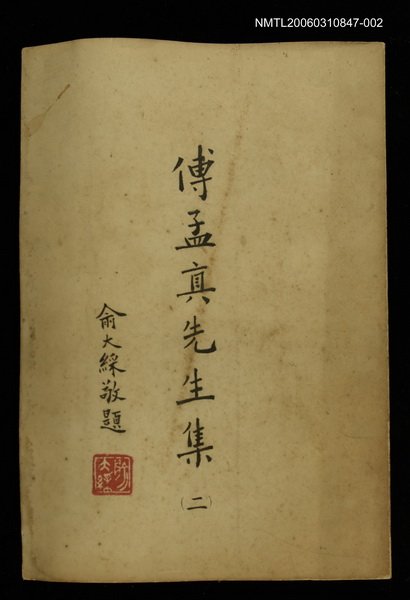 NMTL20060310847-002
傅孟真先生集
(二)
俞大綵敬題
俞大綵